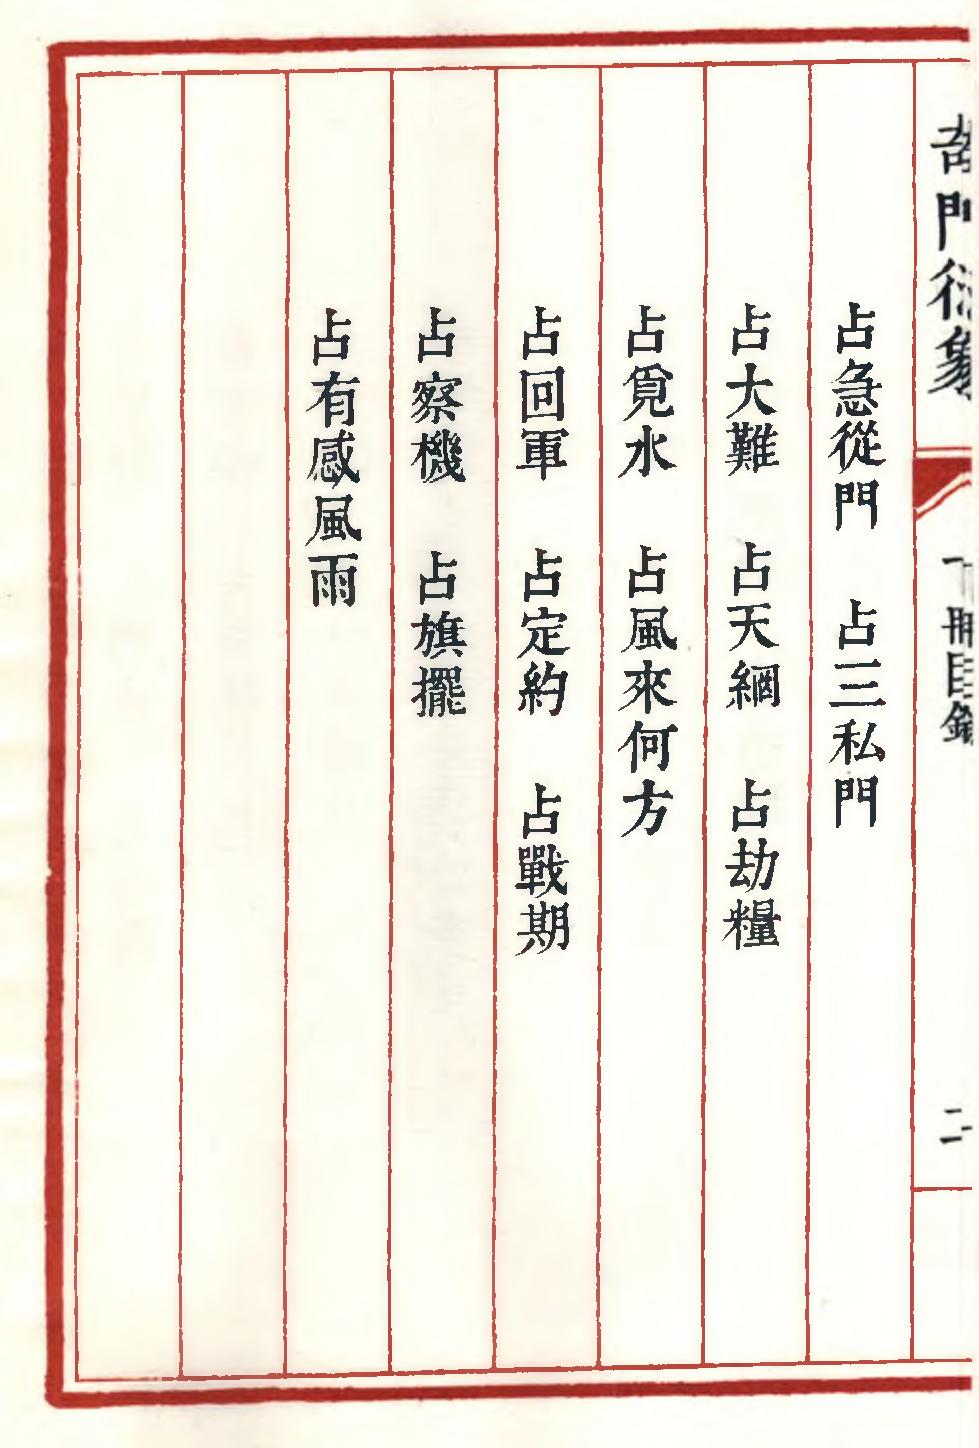 奇門衍象
下冊目錄
二
占急從門　占三私門
占大難　占天網　占劫糧
占覓水　占風來何方
占回軍　占定約　占戰期
占察機　占旗擺
占有感風雨